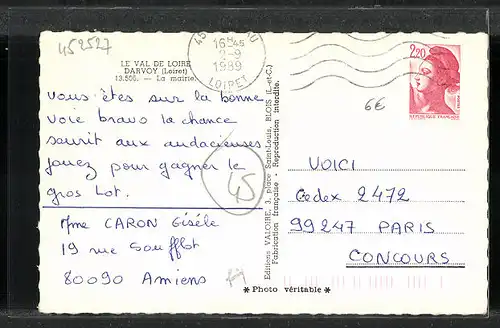 452527
16H45
2-9
1989
LOIRET
2,20
REPUBLIQUE FRANÇAISE
LE VAL DE LOIRE
DARVOY (Loiret)
13.506. - La mairie.
6€
vous êtes sur la bonne
voie bravo la chance
sourit aux audacieuses.
jouez pour gagner le
gros Lot.
45
Mme CARON Gisèle
19 rue Soufflot
80090 Amiens
Editions VALOIRE, 3, place Saint-Louis, BLOIS (L.-et-C.)
Fabrication française - Reproduction interdite.
VOICI
Cedex 2472
99247 PARIS
CONCOURS
* Photo véritable *